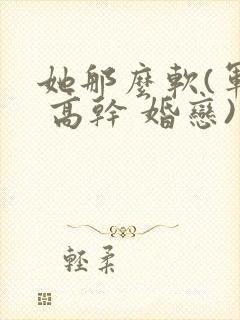 她那麼軟(軍
高幹 婚戀)
輕柔